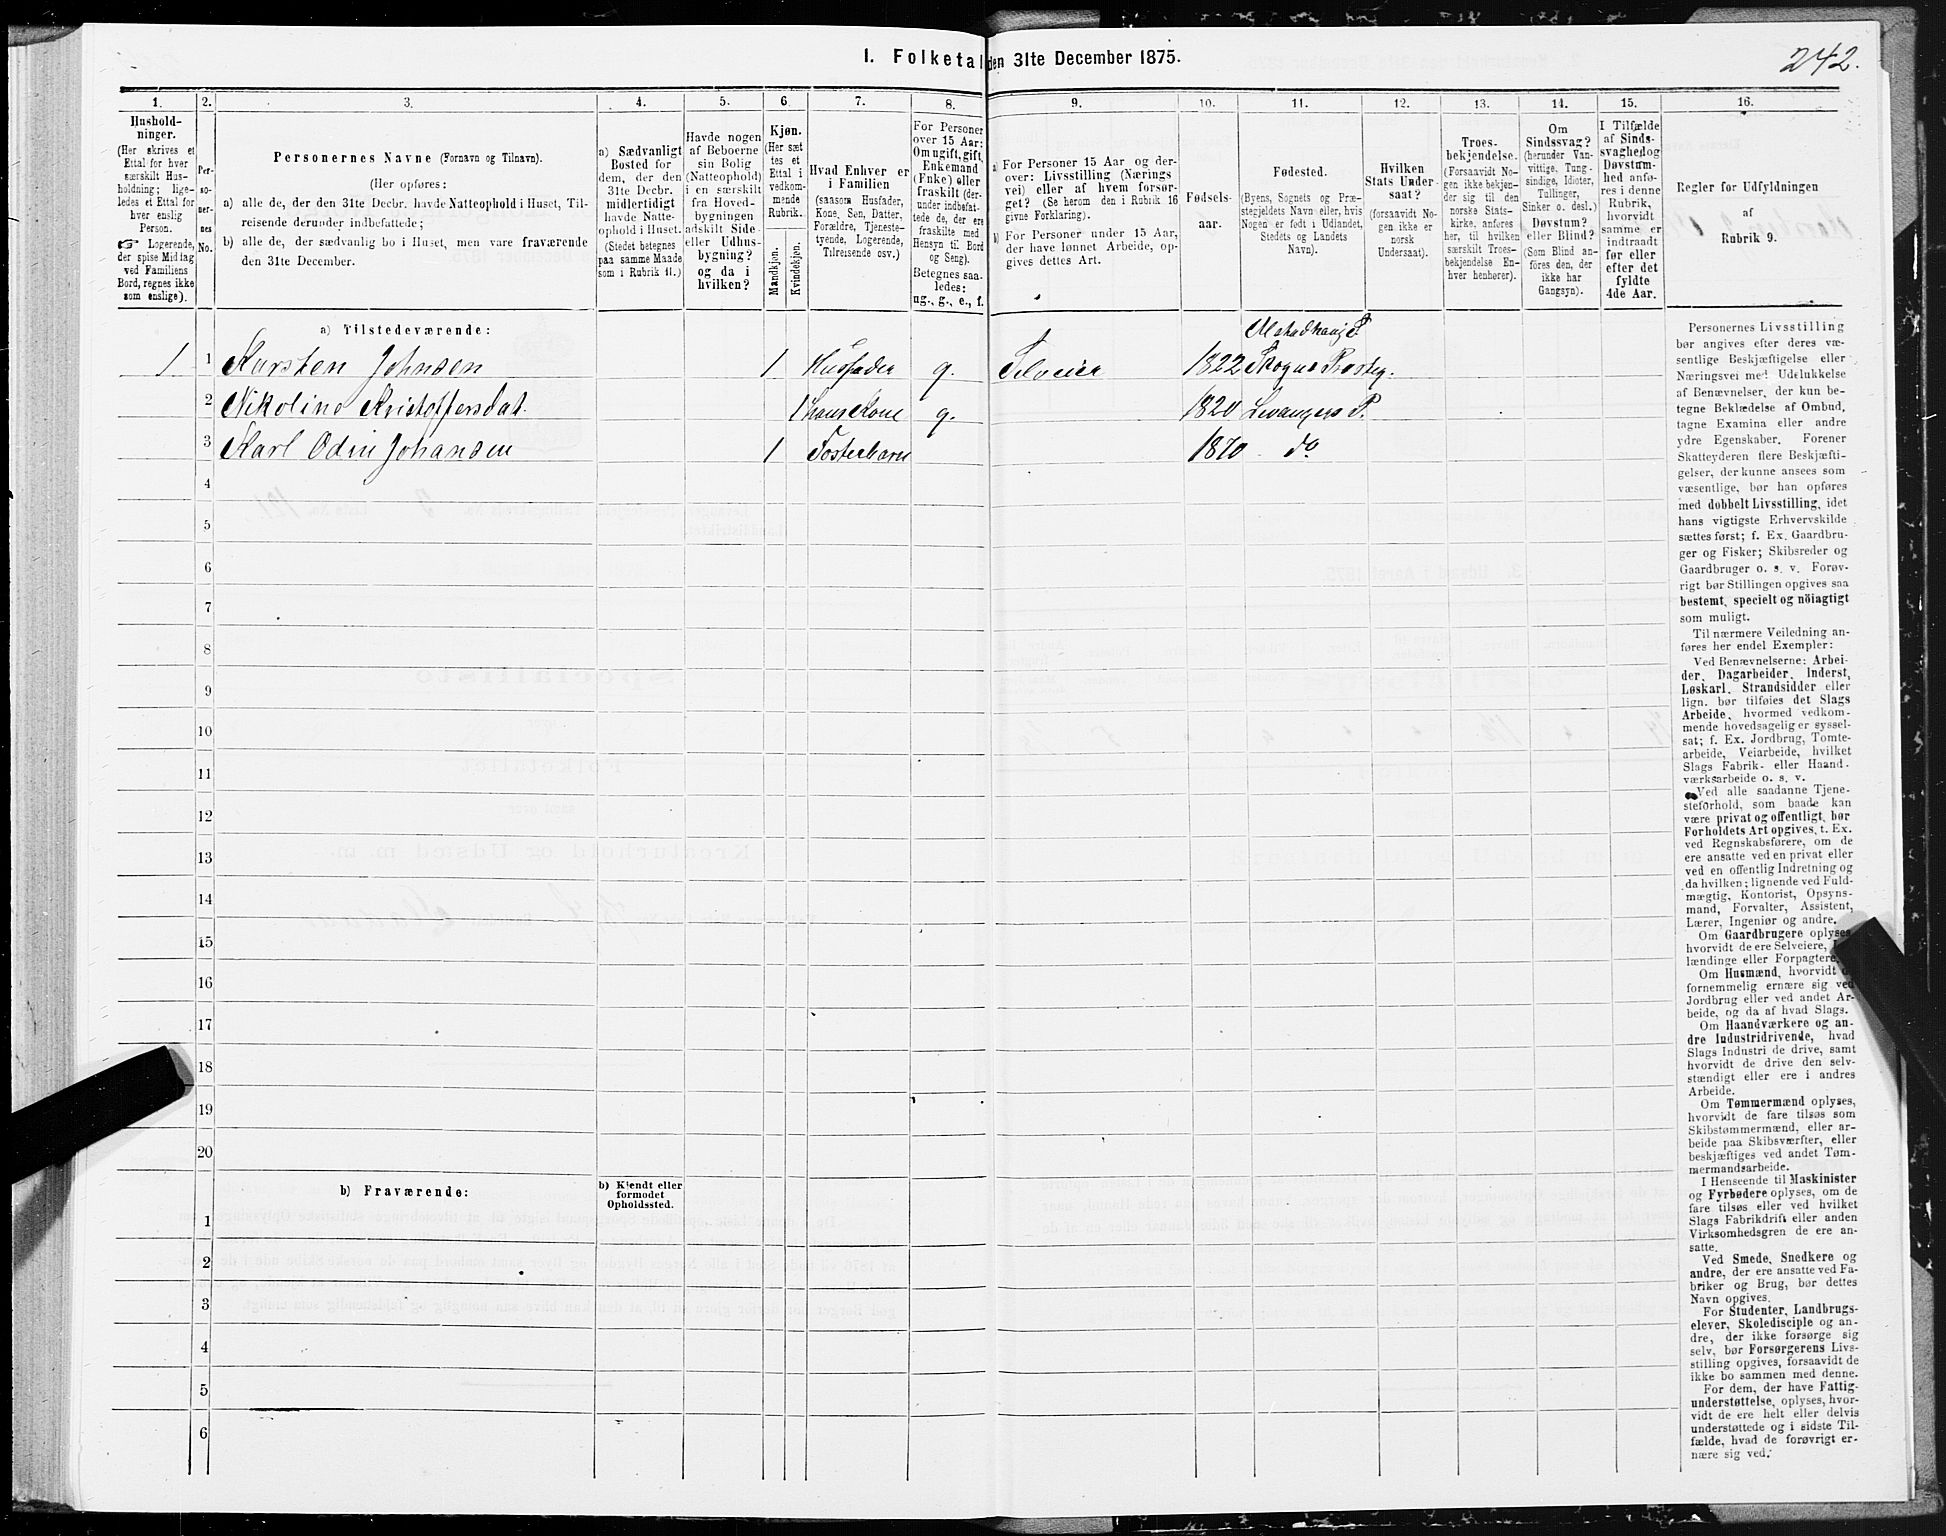 I. Folketal den 31te December 1875.
242.
1. 2. 3. 4. 5. 6. 7. 8. 9. 10. 11. 12. 13. 14. 15. 16.
Hushold-
ninger.
(Her skrives et
Ettal for hver
særskilt Hus-
holdning; lige-
ledes et Ettal for
hver enslig
Person.
Logerende,
der spise Middag
ved Familiens
Bord, regnes ikke
som enslige).
Per-
so-
ner-
nes
No.
Personernes Navne (Fornavn og Tilnavn).
(Her opføres:
a) alle de, der den 31te Decbr. havde Natteophold i Huset, Til-
reisende derunder indbefattede;
b) alle de, der sædvanlig bo i Huset, men vare fraværende
den 31te December.
a) Sædvanligt
Bosted for
dem, der den
31te Decbr.
midlertidigt
havde Natte-
ophold i Huset.
(Stedet betegnes
paa samme Maade
som i Rubrik 11.)
Havde nogen
af Beboerne
sin Bolig
(Natteophold)
i en særskilt
fra Hoved-
bygningen
adskilt Side-
eller Udhus-
bygning?
og da i
hvilken?
Kjøn.
(Her sæt-
tes et
Ettal i
vedkom-
mende
Rubrik.
Mandkjøn.
Kvindekjøn.
Hvad Enhver er
i Familien
(saasom Husfader,
Kone, Søn, Datter,
Forældre, Tjeneste-
tyende, Logerende,
Tilreisende osv.)
For Personer
over 15 Aar:
Om ugift, gift,
Enkemand
(Enke) eller
fraskilt (der-
under indbefat-
tede de, der ere
fraskilte med
Hensyn til Bord
og Seng).
Betegnes saa-
ledes:
ug., g., e., f.
a) For Personer 15 Aar og der-
over: Livsstilling (Nærings-
vei) eller af hvem forsør-
get? (Se herom den i Rubrik 16
givne Forklaring).
b) For Personer under 15 Aar,
der have lønnet Arbeide, op-
gives dettes Art.
Fødsels-
aar.
Fødested.
(Byens, Sognets og Præ-
stegjeldets Navn eller, hvis
Nogen er født i Udlandet,
Stedets og Landets
Navn).
Hvilken
Stats Under-
saat?
(forsaavidt No-
gen ikke er
norsk
Undersaat).
Troes-
bekjendelse.
(Forsaavidt No-
gen ikke bekjen-
der sig til den
norske Stats-
kirke, anføres
her, til hvilken
særskilt Troes-
bekjendelse En-
hver henhører).
Om
Sindssvag?
(herunder Van-
vittige, Tung-
sindige, Idioter,
Tullinger,
Sinker o. desl.)
Døvstum?
eller Blind?
(Som Blind an-
føres den, der
ikke har
Gangsyn).
I Tilfælde
af Sinds-
svaghed og
Døvstum-
hed anfø-
res i denne
Rubrik,
hvorvidt
samme er
indtraadt
før eller
efter det
fyldte
4de Aar.
Regler for Udfyldningen
af
Rubrik 9.
a) Tilstedeværende:
1 1 Karsten Johnsen 1 Husfader g. Selveier 1822 Skogns Præsteg.
2 Nikoline Kristoffersdat. 1 hans Kone g. 1820 Levangers P.
3 Karl Odin Johansen 1 Fosterbarn 1870 do
4
5
6
7
8
9
10
11
12
13
14
15
16
17
18
19
20
b) Fraværende:
b) Kjendt eller
formodet
Opholdssted.
1
2
3
4
5
6
Personernes Livsstilling
bør angives efter deres væ-
sentlige Beskjæftigelse eller
Næringsvei med Udelukkelse
af Benævnelser, der kun be-
tegne Beklædelse af Ombud,
tagne Examina eller andre
ydre Egenskaber. Forener
Skatteyderen flere Beskjæfti-
gelser, der kunne ansees som
væsentlige, bør han opføres
med dobbelt Livsstilling, idet
hans vigtigste Erhvervskilde
sættes først; f. Ex. Gaardbru-
ger og Fisker; Skibsreder og
Gaardbruger o. s. v. Forøv-
rigt bør Stillingen opgives saa
bestemt, specielt og nöiagtigt
som muligt.
Til nærmere Veiledning an-
føres her endel Exempler:
Ved Benævnelserne: Arbei-
der, Dagarbeider, Inderst,
Løskarl, Strandsidder eller
lign. bør tilføies det Slags
Arbeide, hvormed vedkom-
mende hovedsagelig er syssel-
sat; f. Ex. Jordbrug, Tomte-
arbeide, Veiarbeide, hvilket
Slags Fabrik- eller Haand-
værksarbeide o. s. v.
Ved alle saadanne Tjene-
steforhold, som baade kan
være privat og offentligt, bør
Forholdets Art opgives, t. Ex.
ved Regnskabsførere, om de
ere ansatte ved en privat eller
ved en offentlig Indretning og
da hvilken; lignende ved Fuld-
mægtig, Kontorist, Opsyns-
mand, Forvalter, Assistent,
Lærer, Ingeniør og andre.
Om Gaardbrugere oplyses,
hvorvidt de ere Selveiere,
lændinge eller Forpagtere.
Om Husmænd, hvorvidt
fornemmelig ernære sig ved
Jordbrug eller ved andet Ar-
beide, og da af hvad Slags.
Om Haandværkere og an-
dre Industridrivende, hvad
Slags Industri de drive, samt
hvorvidt de drive den selv-
stændigt eller ere i andres
Arbeide.
Om Tømmermænd oplyses,
hvorvidt de fare tilsøs som
Skibstømmermænd, eller ar-
beide paa Skibsværfter, eller
beskjæftiges ved andet Tøm-
mermandsarbeide.
I Henseende til Maskinister
og Fyrbødere oplyses, om de
fare tilsøs eller ved hvilket
Slags Fabrikdrift eller anden
Virksomhedsgren de ere an-
satte.
Ved Smede, Snedkere og
andre, der ere ansatte ved Fa-
briker og Brug, bør dettes
Navn opgives.
For Studenter, Landbrugs-
elever, Skoledisciple og an-
dre, der ikke forsørge sig
selv, bør Forsørgerens Livs-
stilling opgives, forsaavidt de
ikke bo sammen med denne.
For dem, der have Fattig-
understøttelse, oplyses, hvor-
vidt de ere helt eller delvis
understøttede og i sidste Til-
fælde, hvad de forøvrigt er-
nære sig ved.